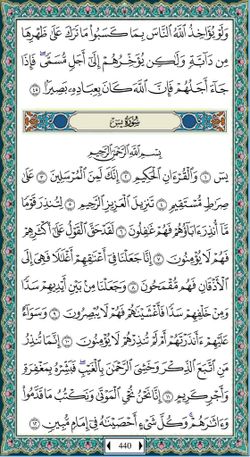 وَلَوْ يُؤَاخِذُ ٱللَّهُ ٱلنَّاسَ بِمَا كَسَبُوا۟ مَا تَرَكَ عَلَىٰ ظَهْرِهَا
مِن دَآبَّةٍ وَلَٰكِن يُؤَخِّرُهُمْ إِلَىٰٓ أَجَلٍ مُّسَمًّى ۖ فَإِذَا
جَآءَ أَجَلُهُمْ فَإِنَّ ٱللَّهَ كَانَ بِعِبَادِهِۦ بَصِيرًۢا ٤٥
سُورَةُ يسٓ
بِسْمِ ٱللَّهِ ٱلرَّحْمَٰنِ ٱلرَّحِيمِ
يسٓ ١ وَٱلْقُرْءَانِ ٱلْحَكِيمِ ٢ إِنَّكَ لَمِنَ ٱلْمُرْسَلِينَ ٣ عَلَىٰ
صِرَٰطٍ مُّسْتَقِيمٍ ٤ تَنزِيلَ ٱلْعَزِيزِ ٱلرَّحِيمِ ٥ لِتُنذِرَ قَوْمًا
مَّآ أُنذِرَ ءَابَآؤُهُمْ فَهُمْ غَٰفِلُونَ ٦ لَقَدْ حَقَّ ٱلْقَوْلُ عَلَىٰٓ أَكْثَرِهِمْ
فَهُمْ لَا يُؤْمِنُونَ ٧ إِنَّا جَعَلْنَا فِىٓ أَعْنَٰقِهِمْ أَغْلَٰلًا فَهِىَ إِلَى
ٱلْأَذْقَانِ فَهُم مُّقْمَحُونَ ٨ وَجَعَلْنَا مِنۢ بَيْنِ أَيْدِيهِمْ سَدًّا
وَمِنْ خَلْفِهِمْ سَدًّا فَأَغْشَيْنَٰهُمْ فَهُمْ لَا يُبْصِرُونَ ٩ وَسَوَآءٌ
عَلَيْهِمْ ءَأَنذَرْتَهُمْ أَمْ لَمْ تُنذِرْهُمْ لَا يُؤْمِنُونَ ١٠ إِنَّمَا تُنذِرُ
مَنِ ٱتَّبَعَ ٱلذِّكْرَ وَخَشِىَ ٱلرَّحْمَٰنَ بِٱلْغَيْبِ ۖ فَبَشِّرْهُ بِمَغْفِرَةٍ
وَأَجْرٍ كَرِيمٍ ١١ إِنَّا نَحْنُ نُحْىِ ٱلْمَوْتَىٰ وَنَكْتُبُ مَا قَدَّمُوا۟
وَءَاثَٰرَهُمْ ۚ وَكُلَّ شَىْءٍ أَحْصَيْنَٰهُ فِىٓ إِمَامٍ مُّبِينٍ ١٢
440